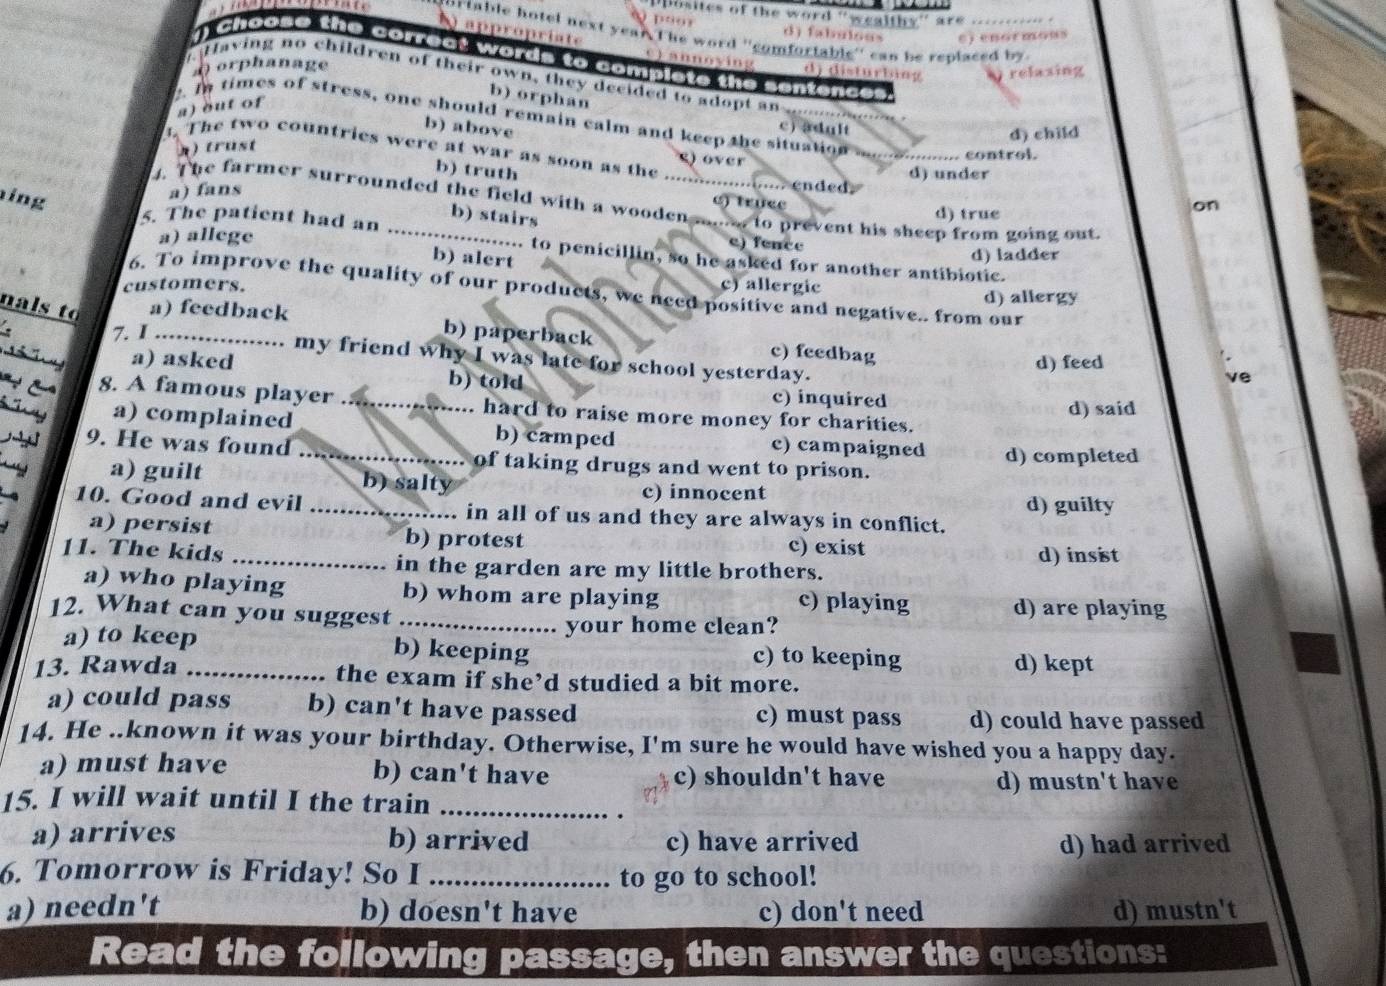 opposites of the word "wealthy" are ............ .
poor d) fabulous e) enormous
hotel next year. The word "comfortable" can be replaced by.
b) appropriate c) annoying d) disturbing relaxing
) Choose the correct words to complete the sentences.
Having no children of their own, they decided to adopt an .................... .
a) orphanage b) orphan c) adult d) child
2. In times of stress, one should remain calm and keep the situation .................... control.
a) out of b) above c) over d) under
3. The two countries were at war as soon as the .................... ended.
a) trust b) truth c) truce d) true
4. The farmer surrounded the field with a wooden ......... to prevent his sheep from going out.
a) fans b) stairs c) fence d) ladder
5. The patient had an .................... to penicillin, so he asked for another antibiotic.
a) allege b) alert c) allergic d) allergy
6. To improve the quality of our products, we need positive and negative.. from our
customers.
a) feedback b) paperback c) feedbag d) feed
7. I .................... my friend why I was late for school yesterday.
a) asked b) told c) inquired d) said
8. A famous player .................... hard to raise more money for charities.
a) complained b) camped c) campaigned d) completed
9. He was found .................... of taking drugs and went to prison.
a) guilt b) salty c) innocent d) guilty
10. Good and evil .................... in all of us and they are always in conflict.
a) persist b) protest c) exist d) insist
11. The kids .................... in the garden are my little brothers.
a) who playing b) whom are playing c) playing d) are playing
12. What can you suggest .................... your home clean?
a) to keep b) keeping c) to keeping d) kept
13. Rawda .................... the exam if she'd studied a bit more.
a) could pass b) can't have passed c) must pass d) could have passed
14. He ..known it was your birthday. Otherwise, I'm sure he would have wished you a happy day.
a) must have b) can't have c) shouldn't have d) mustn't have
15. I will wait until I the train .................... .
a) arrives b) arrived c) have arrived d) had arrived
6. Tomorrow is Friday! So I .................... to go to school!
a) needn't b) doesn't have c) don't need d) mustn't
Read the following passage, then answer the questions:
Mr Mohamed A
ing
nals to
on
ve